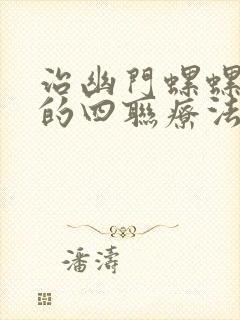 治幽門螺螺
的四聯療法
潘濤